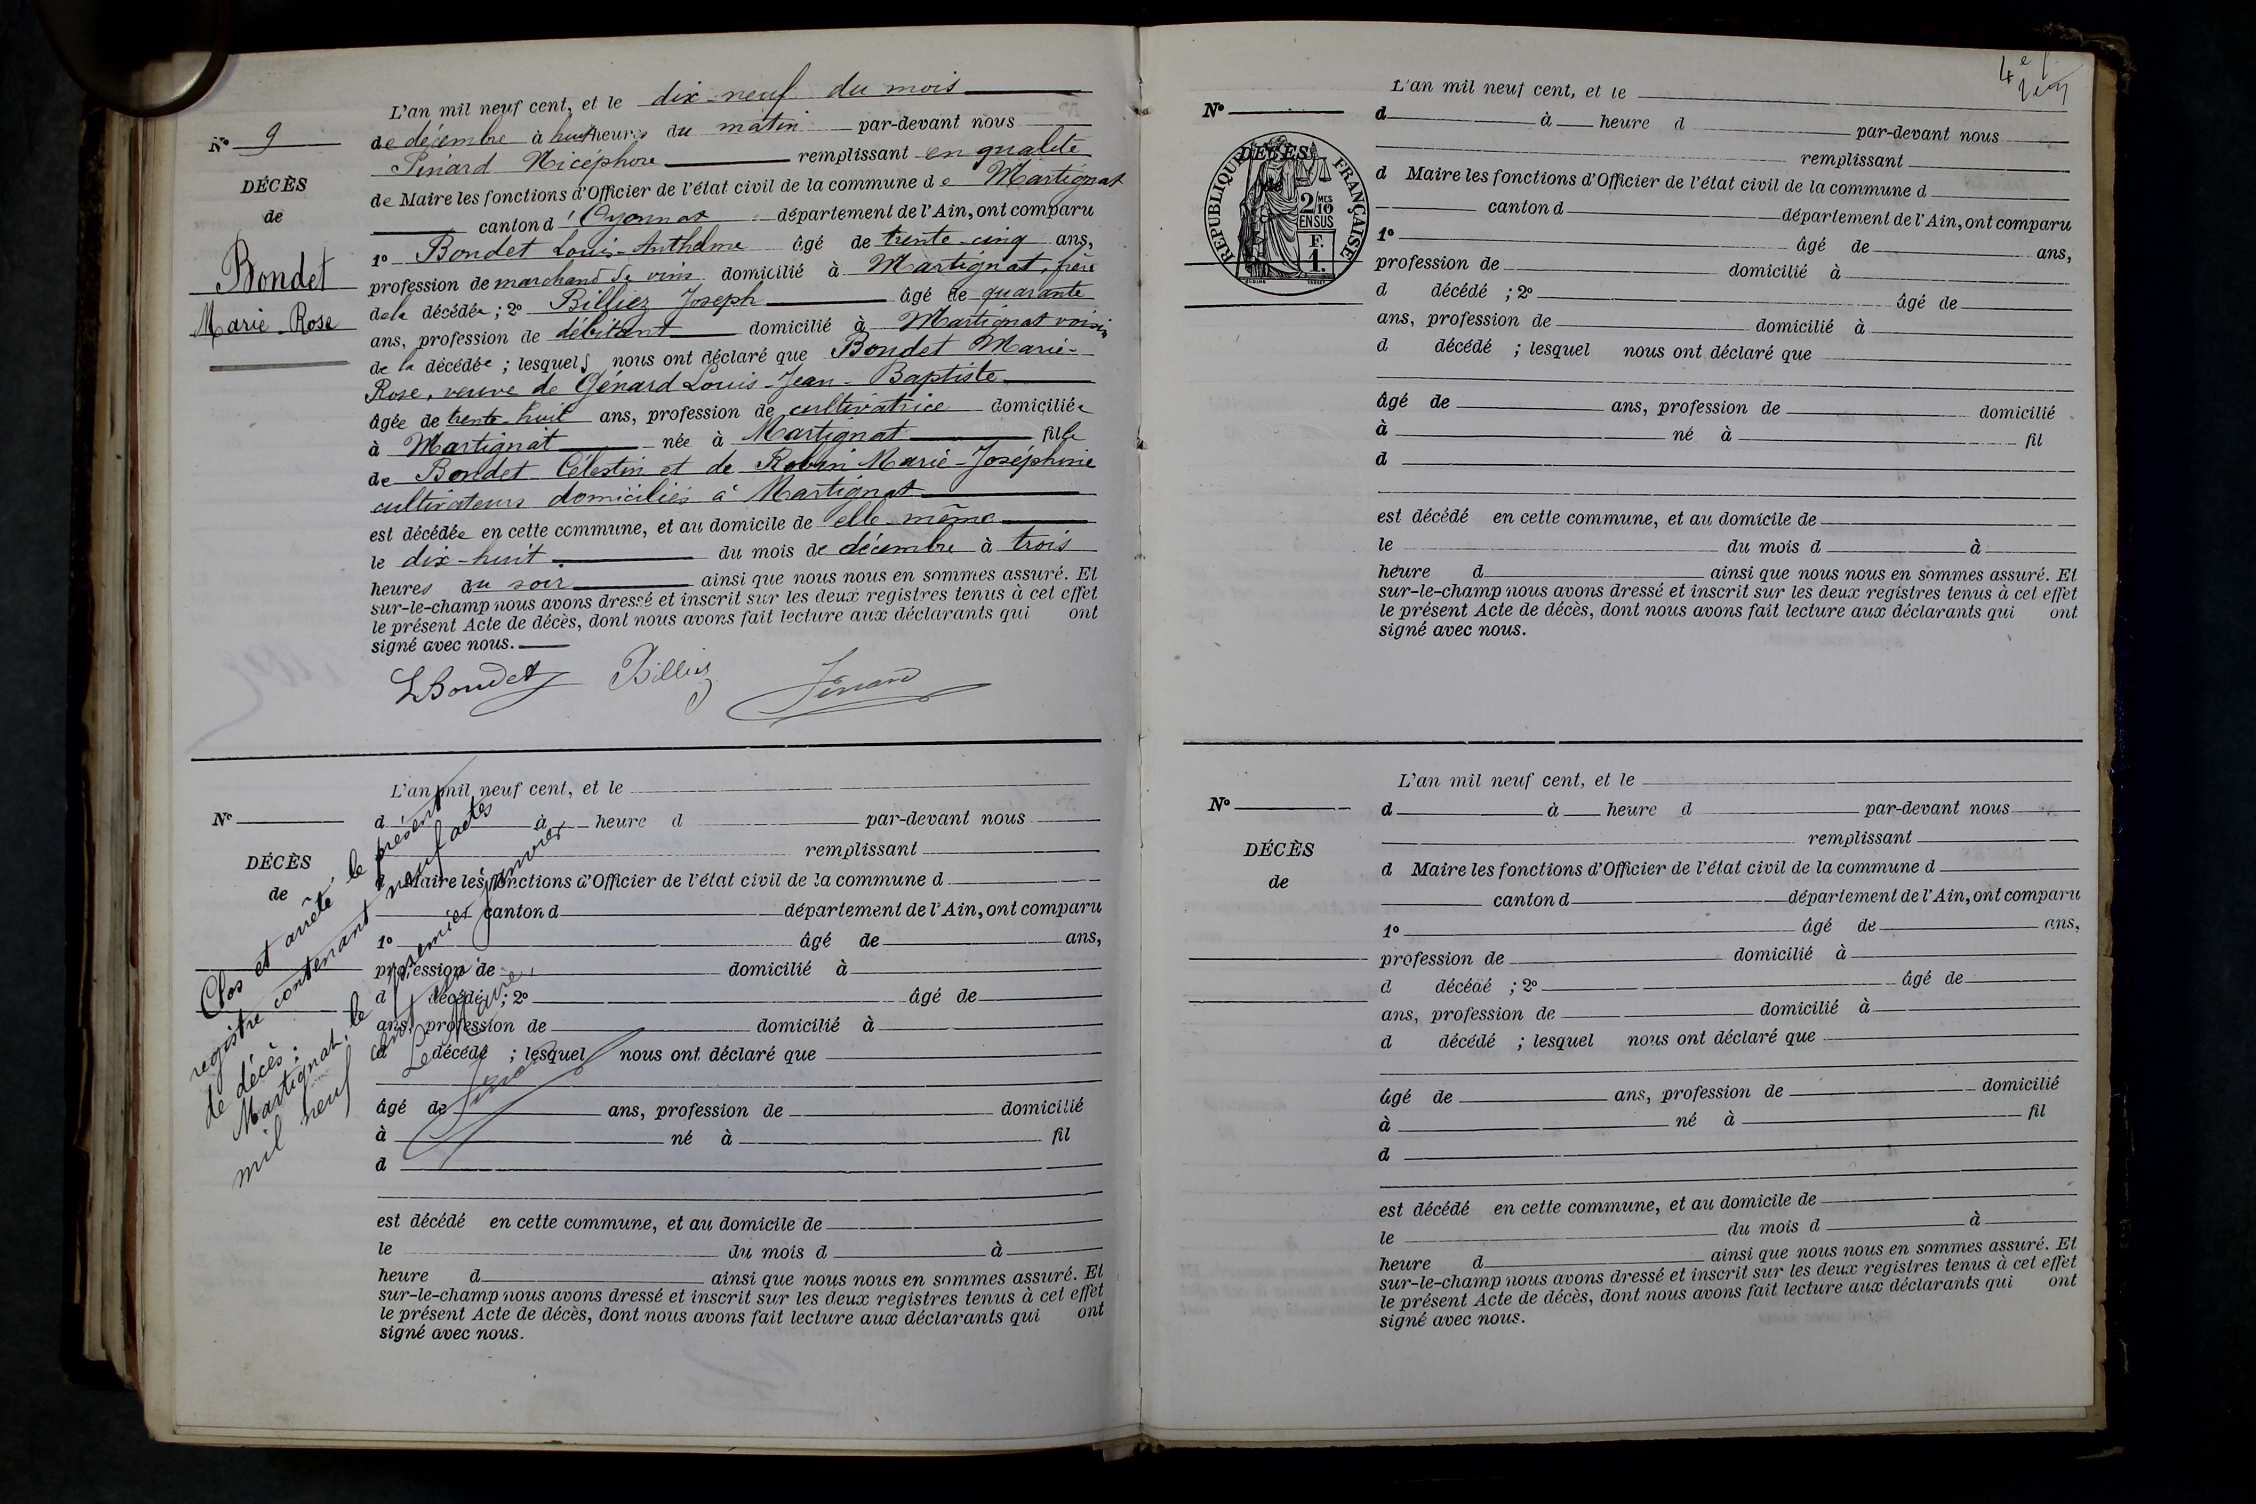 L'an mil neuf cent, et le dix-neuf du mois
N° 9
de décembre à huit heures du matin par-devant nous
Pinard Nicéphore remplissant en qualité
DÉCÈS
de Maire les fonctions d'Officier de l'état civil de la commune de Martignat
de
canton d'Oyonnax département de l'Ain, ont comparu
1° Bondet Louis-Anthelme âgé de trente-cinq ans,
Bondet
profession de marchand de vins domicilié à Martignat, frère
de la décédée ; 2° Billiez Joseph âgé de quarante
Marie-Rose
ans, profession de débitant domicilié à Martignat voisin
de la décédée ; lesquels nous ont déclaré que Bondet Marie-
Rose, veuve de Génard Louis-Jean-Baptiste
âgée de trente-huit ans, profession de cultivatrice domiciliée
à Martignat née à Martignat fille
de Bondet Célestin et de Robin Marie-Joséphine
cultivateurs domiciliés à Martignat
est décédée en cette commune, et au domicile de elle-même
le dix-huit du mois de décembre à trois
heures du soir ainsi que nous nous en sommes assuré. Et
sur-le-champ nous avons dressé et inscrit sur les deux registres tenus à cet effet
le présent Acte de décès, dont nous avons fait lecture aux déclarants qui ont
signé avec nous.
L Bondet Billiez Pinard
L'an mil neuf cent, et le
N°
d à heure d par-devant nous
remplissant
DÉCÈS
d Maire les fonctions d'Officier de l'état civil de la commune d
de
canton d département de l'Ain, ont comparu
1° âgé de ans,
profession de domicilié à
d décédé ; 2° âgé de
ans, profession de domicilié à
d décédé ; lesquel nous ont déclaré que
âgé de ans, profession de domicilié
à né à fil
d
est décédé en cette commune, et au domicile de
le du mois d à
heure d ainsi que nous nous en sommes assuré. Et
sur-le-champ nous avons dressé et inscrit sur les deux registres tenus à cet effet
le présent Acte de décès, dont nous avons fait lecture aux déclarants qui ont
signé avec nous.
Clos et arrêté le présent
registre contenant neuf actes
de décès.
Martignat, le premier janvier
mil neuf cent un
Le Maire,
Pinard
4e f
L'an mil neuf cent, et le
N°
d à heure d par-devant nous
remplissant
DÉCÈS
de
RÉPUBLIQUE FRANÇAISE
2/10 MES
EN SUS
F.
1.
d Maire les fonctions d'Officier de l'état civil de la commune d
canton d département de l'Ain, ont comparu
1° âgé de ans,
profession de domicilié à
d décédé ; 2° âgé de
ans, profession de domicilié à
d décédé ; lesquel nous ont déclaré que
âgé de ans, profession de domicilié
à né à fil
d
est décédé en cette commune, et au domicile de
le du mois d à
heure d ainsi que nous nous en sommes assuré. Et
sur-le-champ nous avons dressé et inscrit sur les deux registres tenus à cet effet
le présent Acte de décès, dont nous avons fait lecture aux déclarants qui ont
signé avec nous.
L'an mil neuf cent, et le
N°
d à heure d par-devant nous
remplissant
DÉCÈS
d Maire les fonctions d'Officier de l'état civil de la commune d
de
canton d département de l'Ain, ont comparu
1° âgé de ans,
profession de domicilié à
d décédé ; 2° âgé de
ans, profession de domicilié à
d décédé ; lesquel nous ont déclaré que
âgé de ans, profession de domicilié
à né à fil
d
est décédé en cette commune, et au domicile de
le du mois d à
heure d ainsi que nous nous en sommes assuré. Et
sur-le-champ nous avons dressé et inscrit sur les deux registres tenus à cet effet
le présent Acte de décès, dont nous avons fait lecture aux déclarants qui ont
signé avec nous.